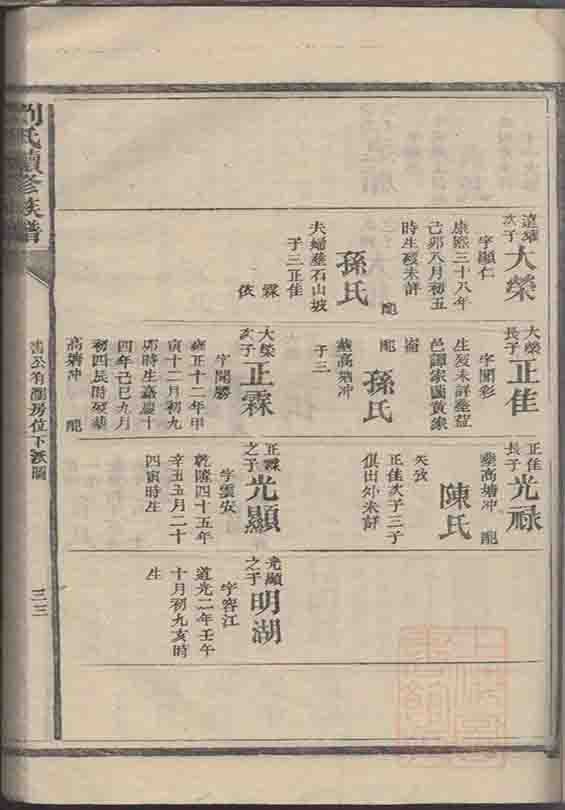 劉氏續修族譜
遠耀次子
大榮
字顯仁
康熙三十八年
己卯八月初五
時生歿未詳
孫氏
夫婦葬石山坡
子三正佳
霖
依
大榮長子
正佳
字開彩
生歿未詳葬益
邑譚家園黃線
崙
孫氏
葬高塘冲
子三
大榮次子
正霖
字開勝
雍正十二年甲
寅十二月初九
卯時生嘉慶十
四年己巳九月
初四辰時歿葬
高塘冲
正佳長子
光祿
葬高塘冲
陳氏
失攷
正佳次子三子
俱出外未詳
正霖之子
光顯
字雲安
乾隆四十五年
辛丑五月二十
四寅時生
光顯之子
明湖
字容江
道光二年壬午
十月初九亥時
生
公有瀏房位下派圖
三三